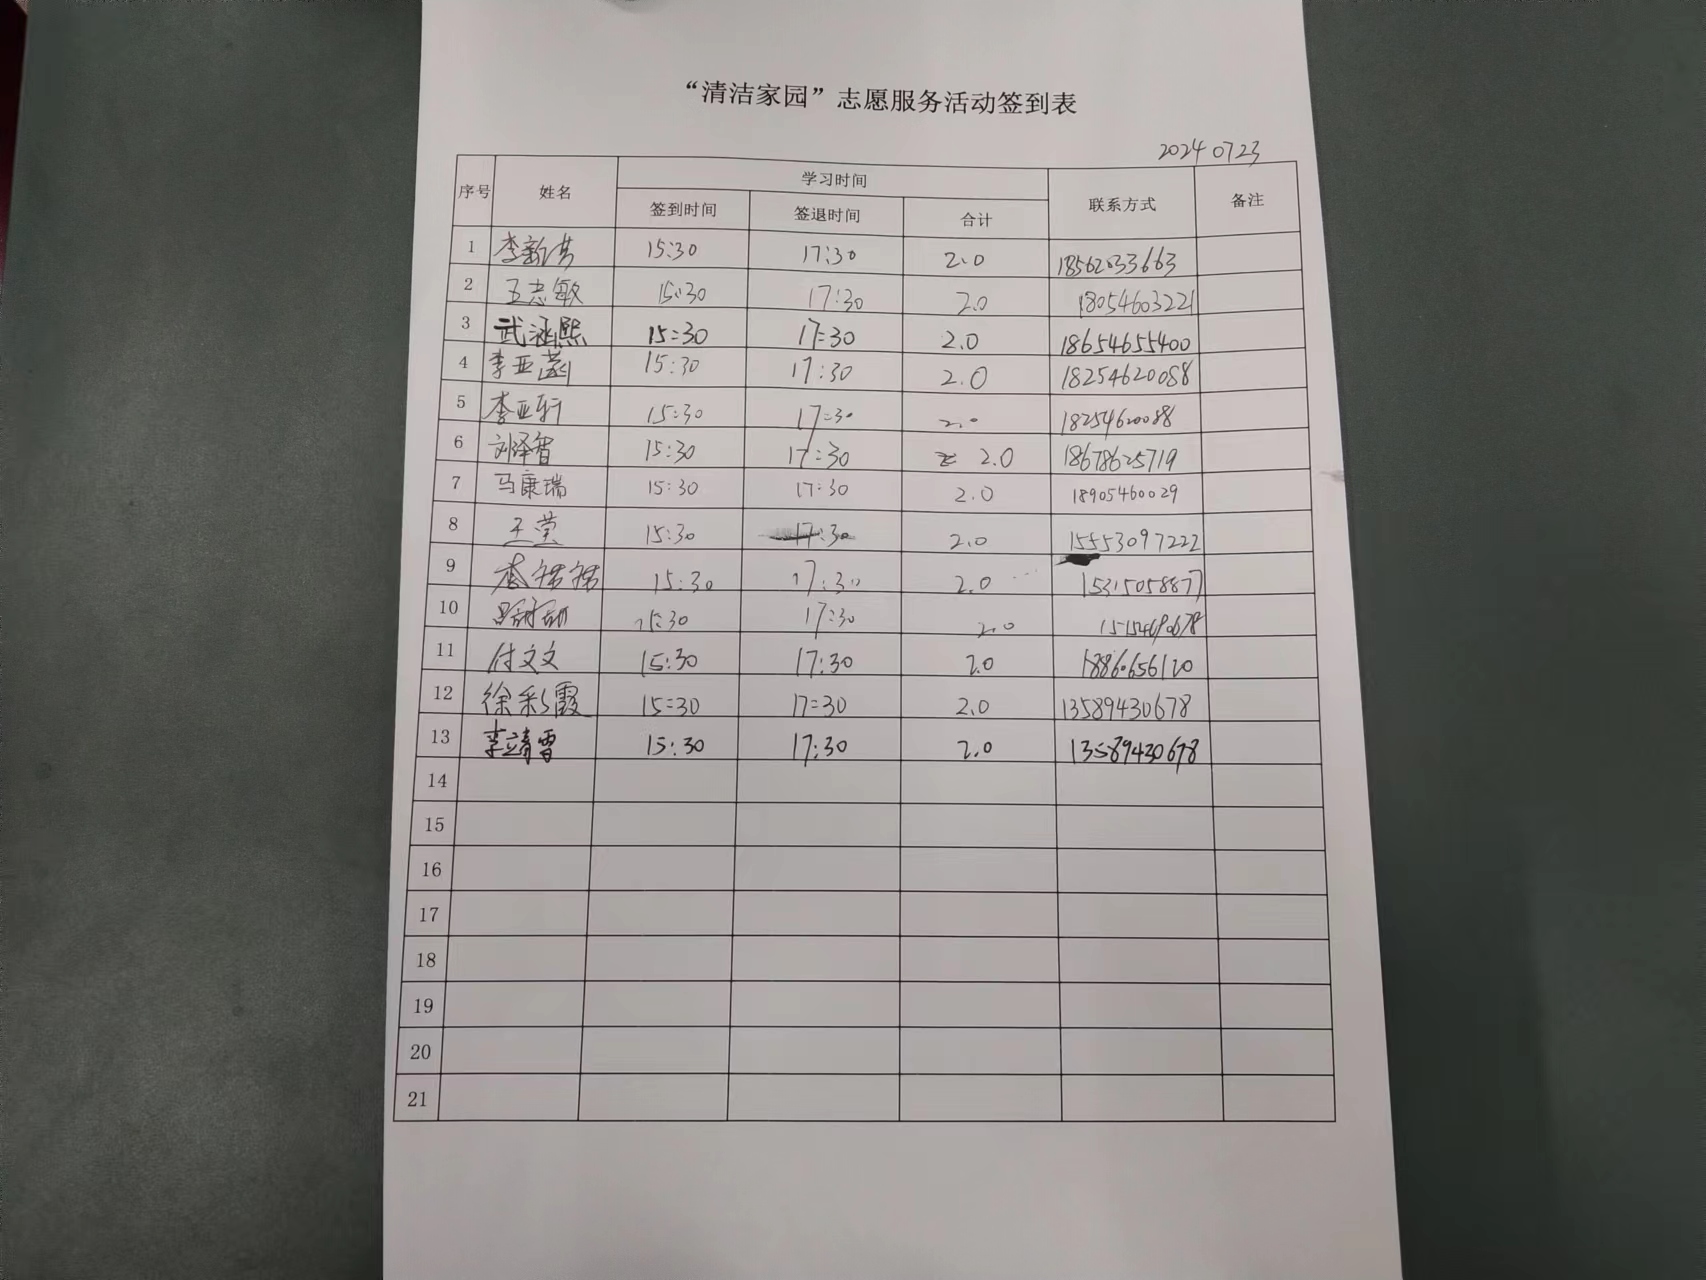 “清洁家园”志愿服务活动签到表
2024 0723
序号 姓名 学习时间 联系方式 备注
签到时间 签退时间 合计
1 李新 15:30 17:30 2.0 18562033663
2 王志敏 15:30 17:30 2.0 18054603221
3 武涵熙 15:30 17:30 2.0 18654655400
4 李亚涵 15:30 17:30 2.0 18254620088
5 李亚轩 15:30 17:30 2.0 18254620088
6 刘泽智 15:30 17:30 2.0 18678625719
7 马康瑞 15:30 17:30 2.0 18905460029
8 王莹 15:30 17:30 2.0 15553097222
9 15:30 17:30 2.0 15315058877
10 15:30 17:30 2.0
11 付文文 15:30 17:30 2.0 18860656120
12 徐彩霞 15:30 17:30 2.0 13589430678
13 李靖雪 15:30 17:30 2.0 13589430678
14
15
16
17
18
19
20
21